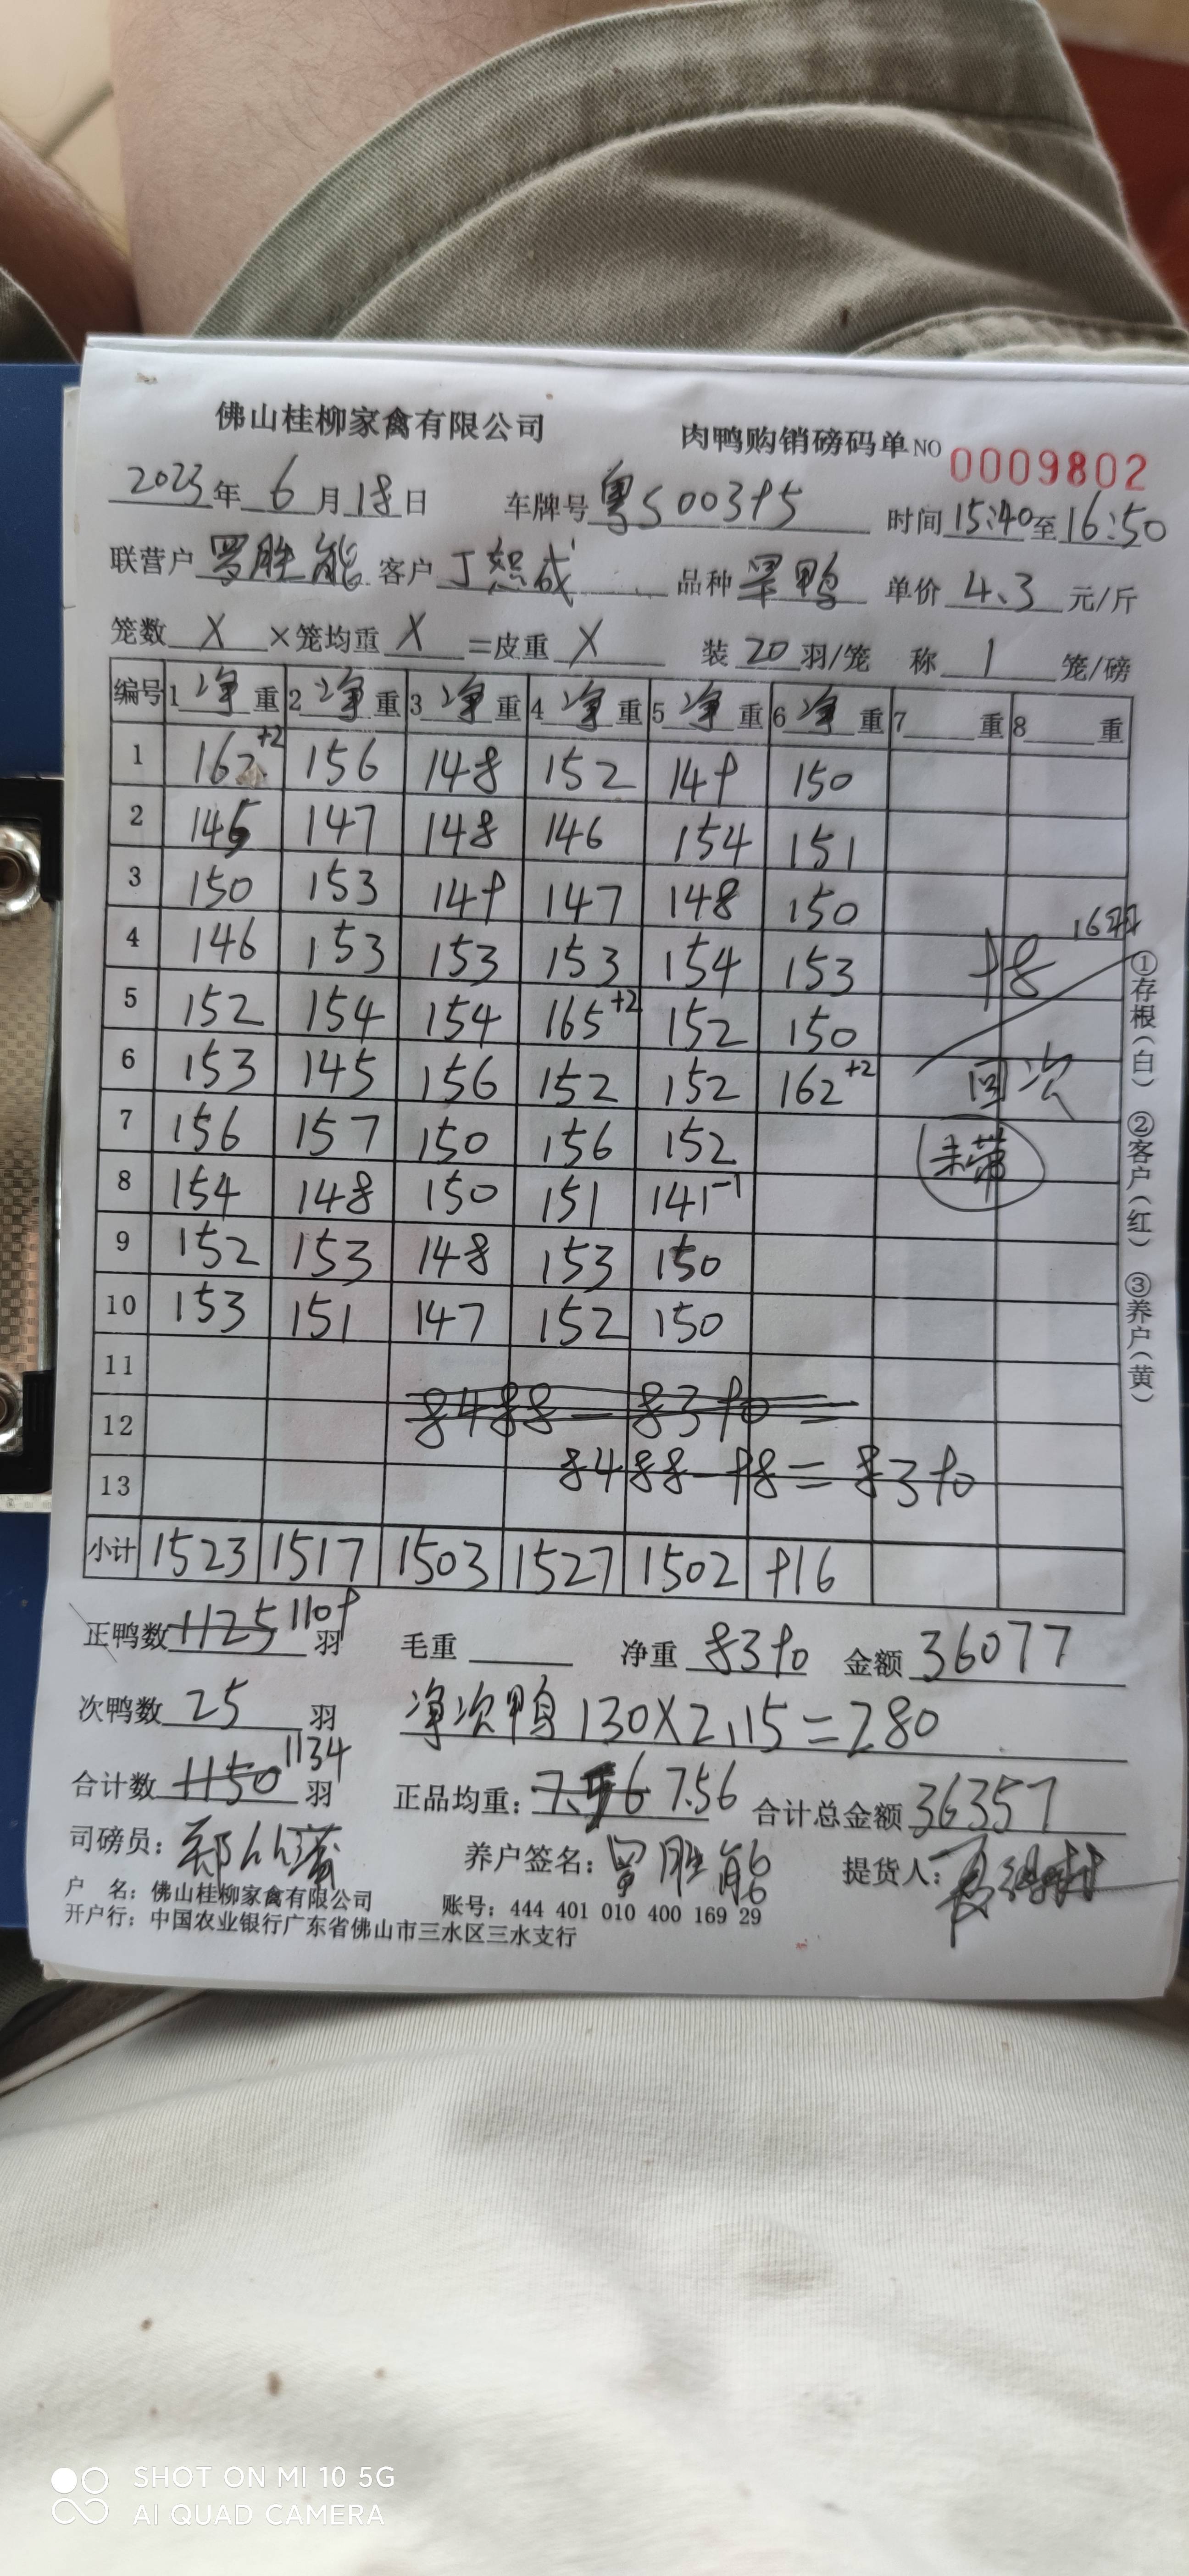 佛山桂柳家禽有限公司 肉鸭购销磅码单 NO 0009802
2023年 6月18日 车牌号 粤S00395 时间 15:40至16:50
联营户 罗胜能 客户 丁恕成 品种 鸭 单价 4.3 元/斤
笼数 X ×笼均重 X =皮重 X 装 20 羽/笼 称 1 笼/磅
编号 1 净 重 2 净 重 3 净 重 4 净 重 5 净 重 6 净 重 7 重 8 重
1 162+2 156 148 152 149 150
2 145 147 148 146 154 151
3 150 153 149 147 148 150
4 146 153 153 153 154 153 98 16羽
5 152 154 154 165+2 152 150
6 153 145 156 152 152 162+2 回次
7 156 157 150 156 152 未带
8 154 148 150 151 141-1
9 152 153 148 153 150
10 153 151 147 152 150
11
12 8488-8390=
13 8488-98=8390
小计 1523 1517 1503 1527 1502 916
正鸭数 1125 1109 羽 毛重 净重 8390 金额 36077
次鸭数 25 羽 净次鸭 130X2.15=280
合计数 1150 1134 羽 正品均重: 7.56 合计总金额 36357
司磅员: 养户签名: 罗胜能 提货人:
户 名: 佛山桂柳家禽有限公司 账号: 444 401 010 400 169 29
开户行: 中国农业银行广东省佛山市三水区三水支行
①存根(白) ②客户(红) ③养户(黄)
SHOT ON MI 10 5G
AI QUAD CAMERA